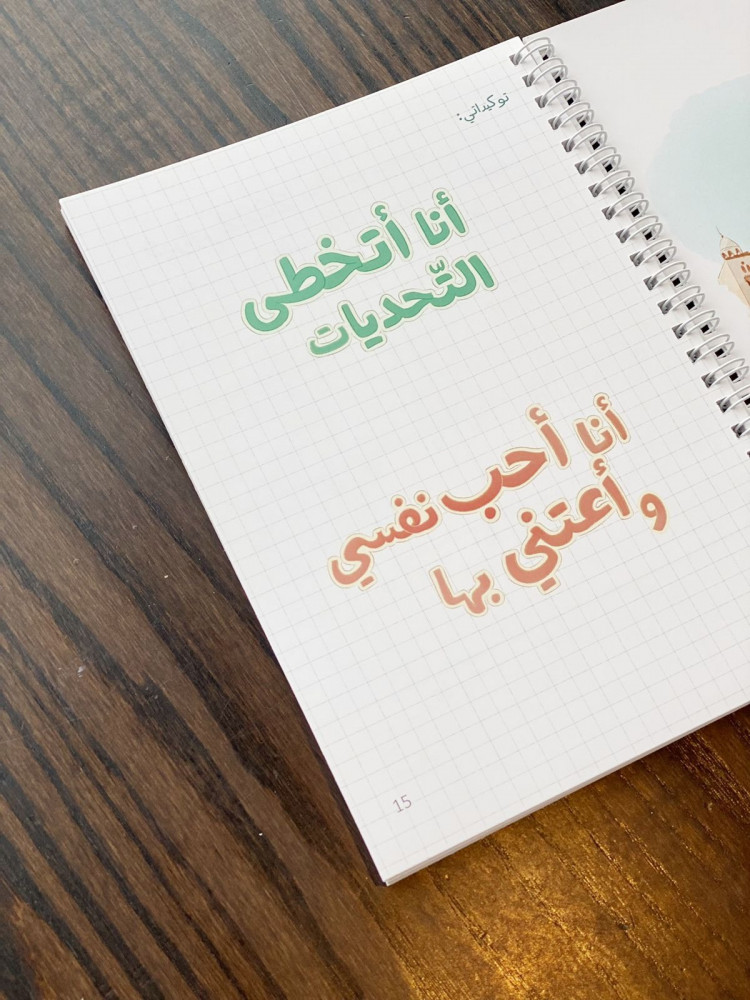 توكيداتي:
أنا أتخطى
التّحديات
أنا أحب نفسي
و أعتني بها
15